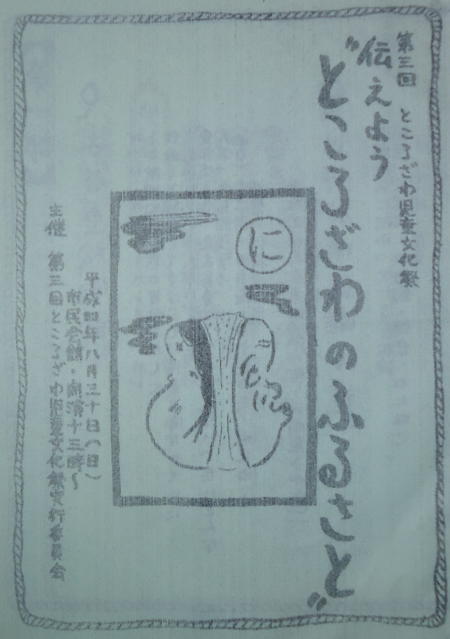 第三回 ところざわ児童文化祭
伝えよう
“ところざわのふるさと”
に
平成四年八月三十日(日)
市民会館・開演十三時〜
主催 第三回ところざわ児童文化祭実行委員会